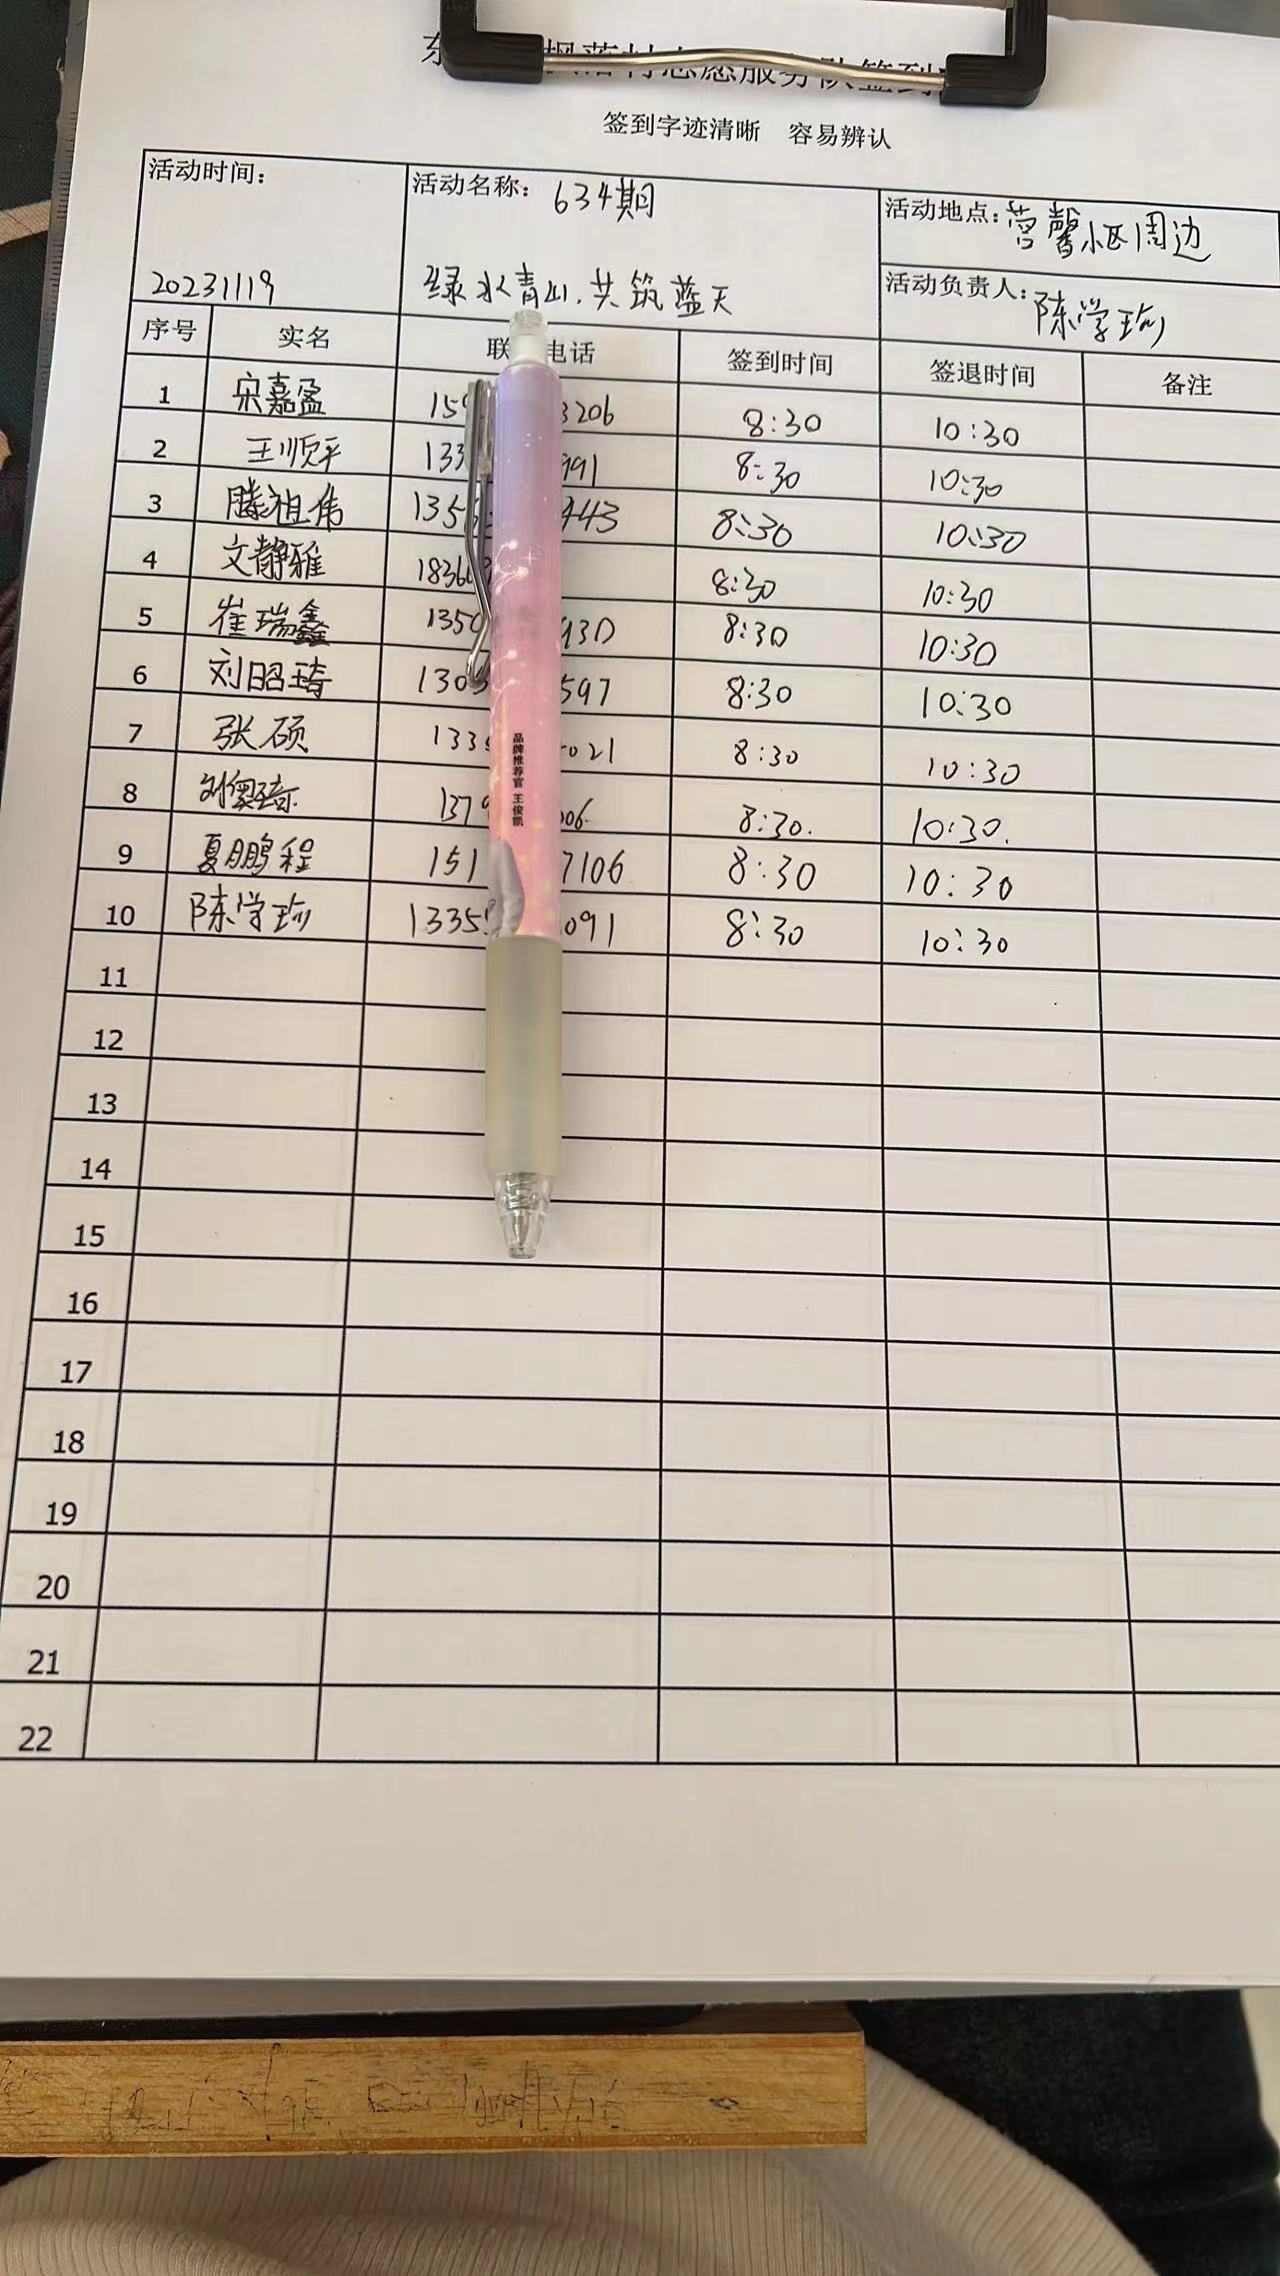 签到字迹清晰 容易辨认
活动时间: 活动名称: 634期 活动地点: 营馨小区周边
20231119 绿水青山.共筑蓝天 活动负责人: 陈学珍
序号 实名 联 电话 签到时间 签退时间 备注
1 宋嘉盈 159 3206 8:30 10:30
2 王顺平 133 991 8:30 10:30
3 滕祖伟 135 443 8:30 10:30
4 文静雅 1836 8:30 10:30
5 崔瑞鑫 1350 930 8:30 10:30
6 刘昭琦 1305 597 8:30 10:30
7 张硕 133 021 8:30 10:30
8 1379 006. 8:30. 10:30.
9 夏鹏程 151 7106 8:30 10:30
10 陈学珍 1335 091 8:30 10:30
11
12
13
14
15
16
17
18
19
20
21
22
品牌推荐官 王俊凯